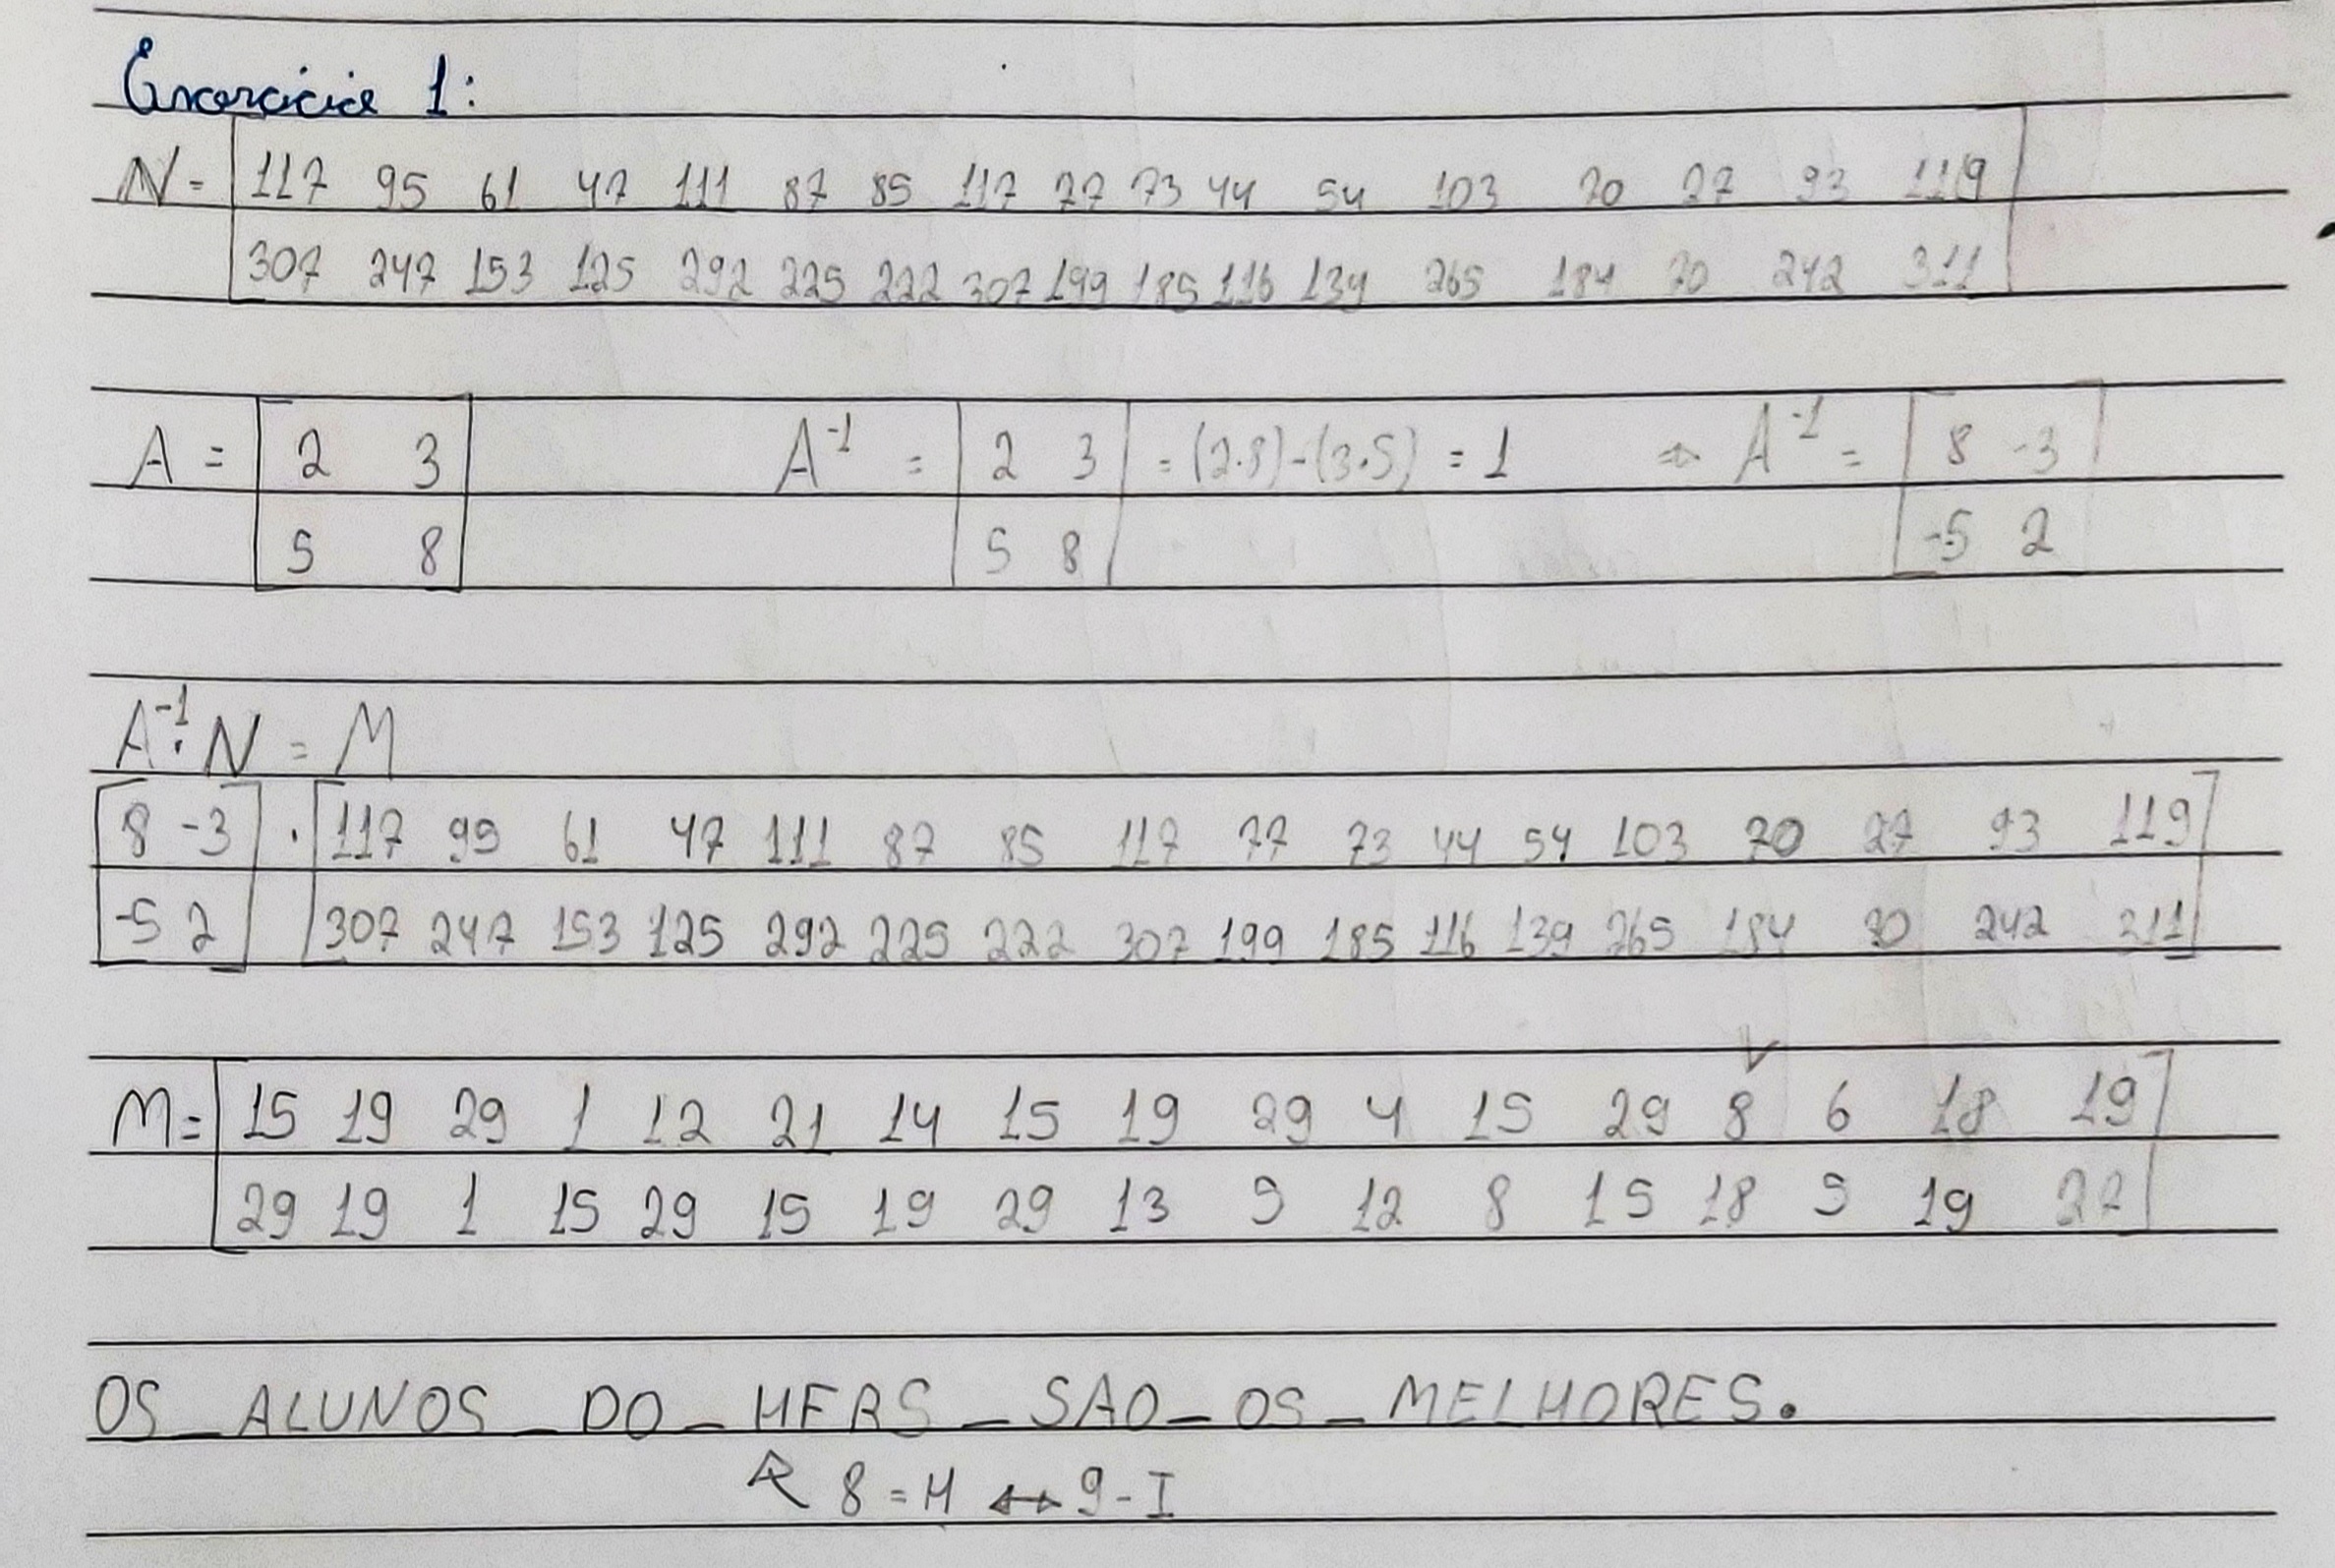 Exercício 1:
N = 117 95 61 47 111 87 85 117 77 73 44 54 103 70 27 93 119
307 247 153 125 292 225 222 307 199 185 116 139 265 184 70 242 311
A = 2 3 A⁻¹ = 2 3 = (2.8)-(3.5) = 1 ⇒ A⁻¹ = 8 -3
5 8 5 8 -5 2
A⁻¹ . N = M
8 -3 . 117 95 61 47 111 87 85 117 77 73 44 54 103 70 27 93 119
-5 2 307 247 153 125 292 225 222 307 199 185 116 139 265 184 70 242 311
M = 15 19 29 1 12 21 14 15 19 29 4 15 29 8 6 18 19
29 19 1 15 29 15 19 29 13 5 12 8 15 18 5 19 27
OS_ALUNOS_DO_HFRS_SAO_OS_MELHORES.
8 = H ↔ 9 - I